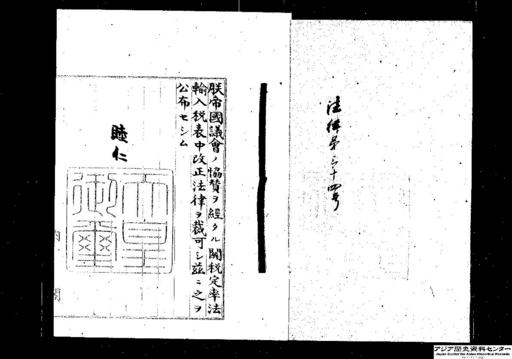 法律第三十四号
朕帝國議會ノ協贊ヲ經タル關税定率法
輸入税表中改正法律ヲ裁可シ茲ニ之ヲ
公布セシム
睦仁
天皇御璽
アジア歴史資料センター
Japan Center for Asian Historical Records